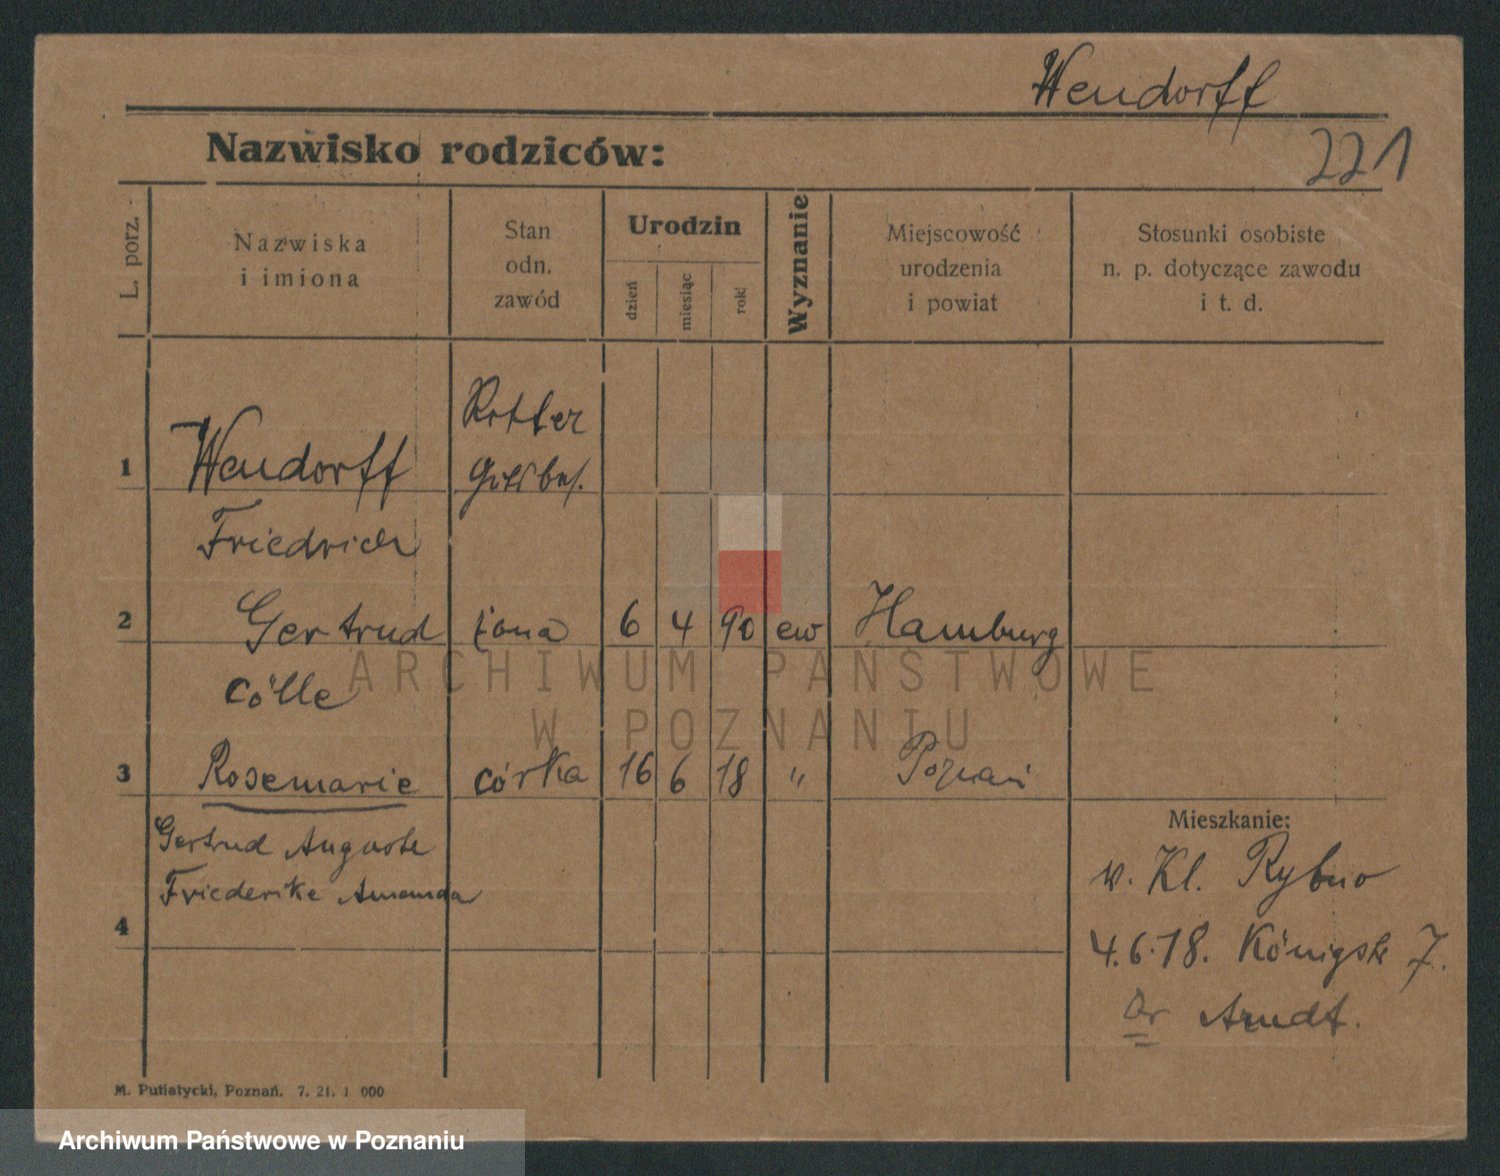 Wendorff
Nazwisko rodziców:
221
L. porz.
Nazwiska
i imiona
Stan
odn.
zawód
Urodzin
dzień
miesiąc
rok
Wyznanie
Miejscowość
urodzenia
i powiat
Stosunki osobiste
n. p. dotyczące zawodu
i t. d.
1
Wendorff
Friedrich
2
Gertrud żona 6 4 90 ew Hamburg
Cölle
3
Rosemarie córka 16 6 18 " Poznań
Gertrud Auguste
Friederike Amanda
4
Mieszkanie:
v. Kl. Rybno
4.6.18. Königstr 7.
Dr Arndt.
M. Putiatycki, Poznań. 7. 21. 1 000
ARCHIWUM PAŃSTWOWE
W POZNANIU
Archiwum Państwowe w Poznaniu